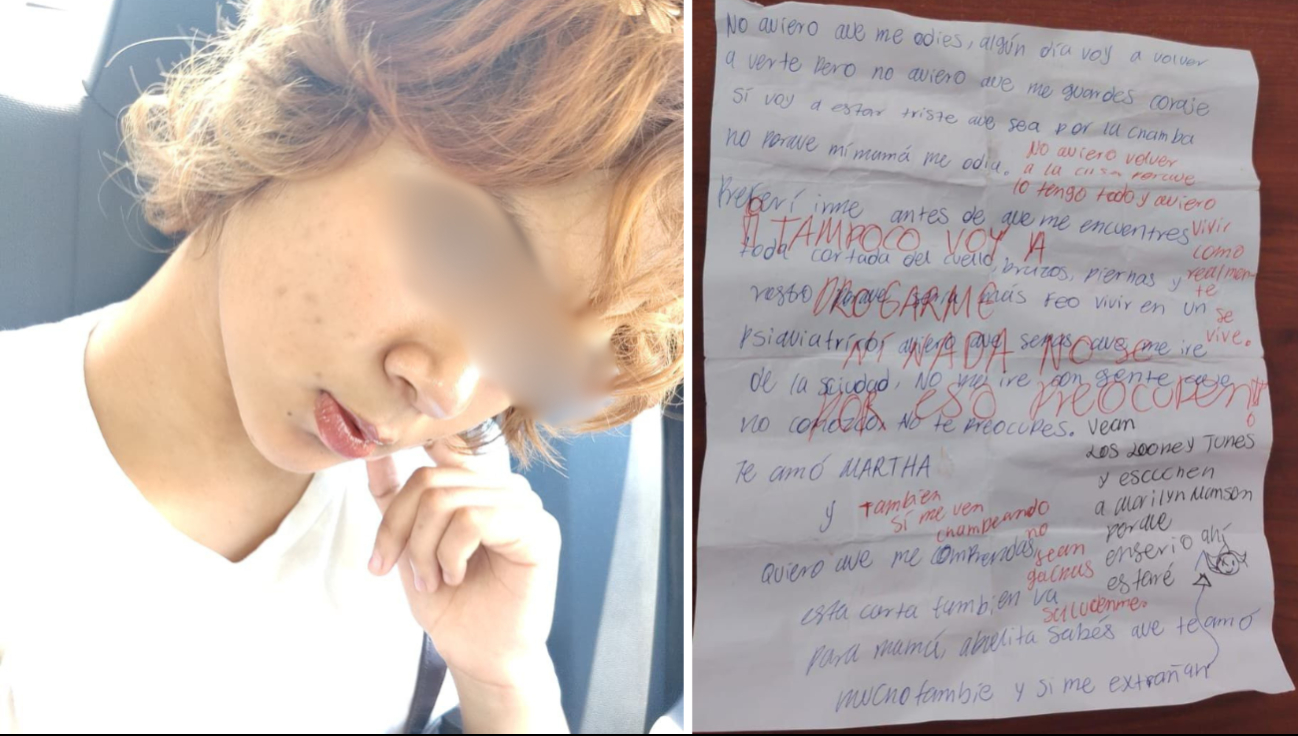 No quiero que me odies, algún día voy a volver
a verte pero no quiero que me guardes coraje
sí voy a estar triste que sea por la chamba
no porque mi mamá me odia.
No quiero volver
a la casa porque
lo tengo todo y quiero
vivir
como
realmen-
te
se
vive.
Preferí irme antes de que me encuentres
toda cortada del cuello, brazos, piernas y
rostro más feo vivir en un
psiquiatrico quiero que sepas que me iré
de la sciudad, No me iré con gente que
no conozco. No te preocupes.
Y TAMPOCO VOY A
DROGARME
NI NADA NO SE
POR ESO PREOCUPEN
Te amó MARTHA
y
también
sí me ven
chambeando
no
sean
gachas
salúdenme.
Vean
Los Looney Tunes
y escuchen
a Marilyn Manson
porque
enserio ahí
estaré
quiero que me comprendas,
esta carta tambien va
para mamá, abuelita sabés que te amó
mucho tambie y si me extrañan